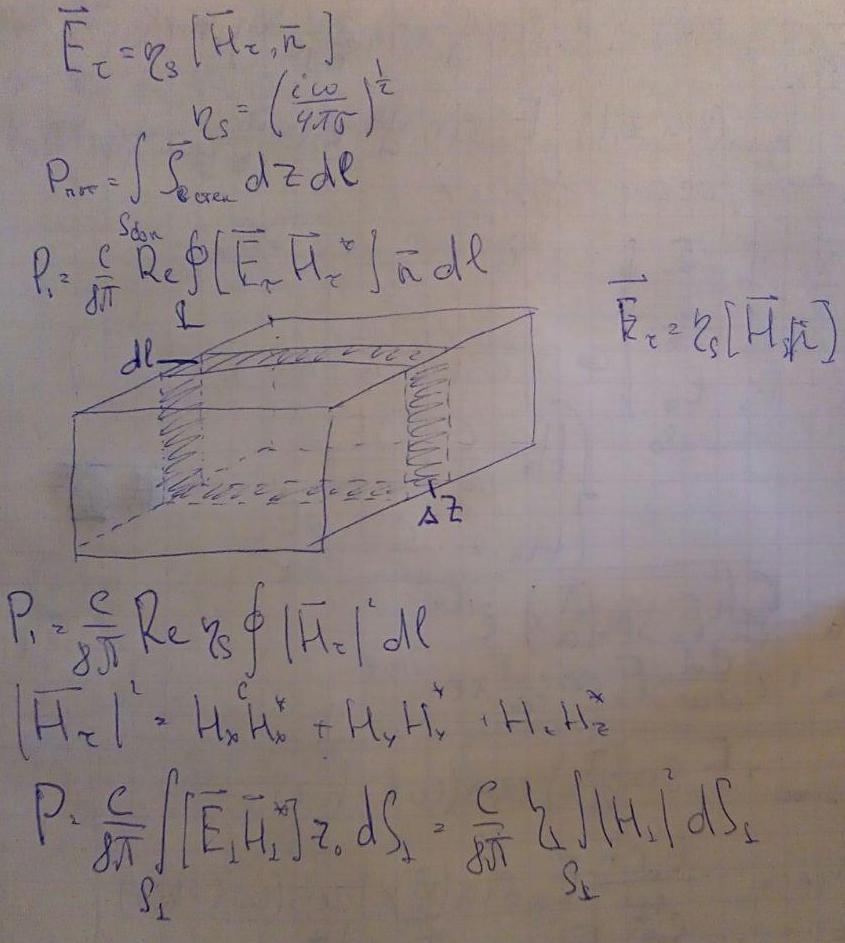 E⃗_τ = η_s [H̄_τ, n̄]
η_s = (iω/4πσ)^{1/2}
P_пот = ∫ S̄ dz dl
P_1 = c/8π Re ∮ [E⃗_τ H̄_τ^*] n̄ dl
E⃗_τ = η_s [H̄, n̄]
dl
Δz
P_1 = c/8π Re η_s ∮ |H̄_τ|² dl
|H̄_τ|² = H_x H_x^* + H_y H_y^* + H_z H_z^*
P = c/8π ∫_{S_⊥} [E⃗_⊥ H̄_⊥^*] z_0 dS_⊥ = c/8π η_⊥ ∫_{S_⊥} |H_⊥|² dS_⊥